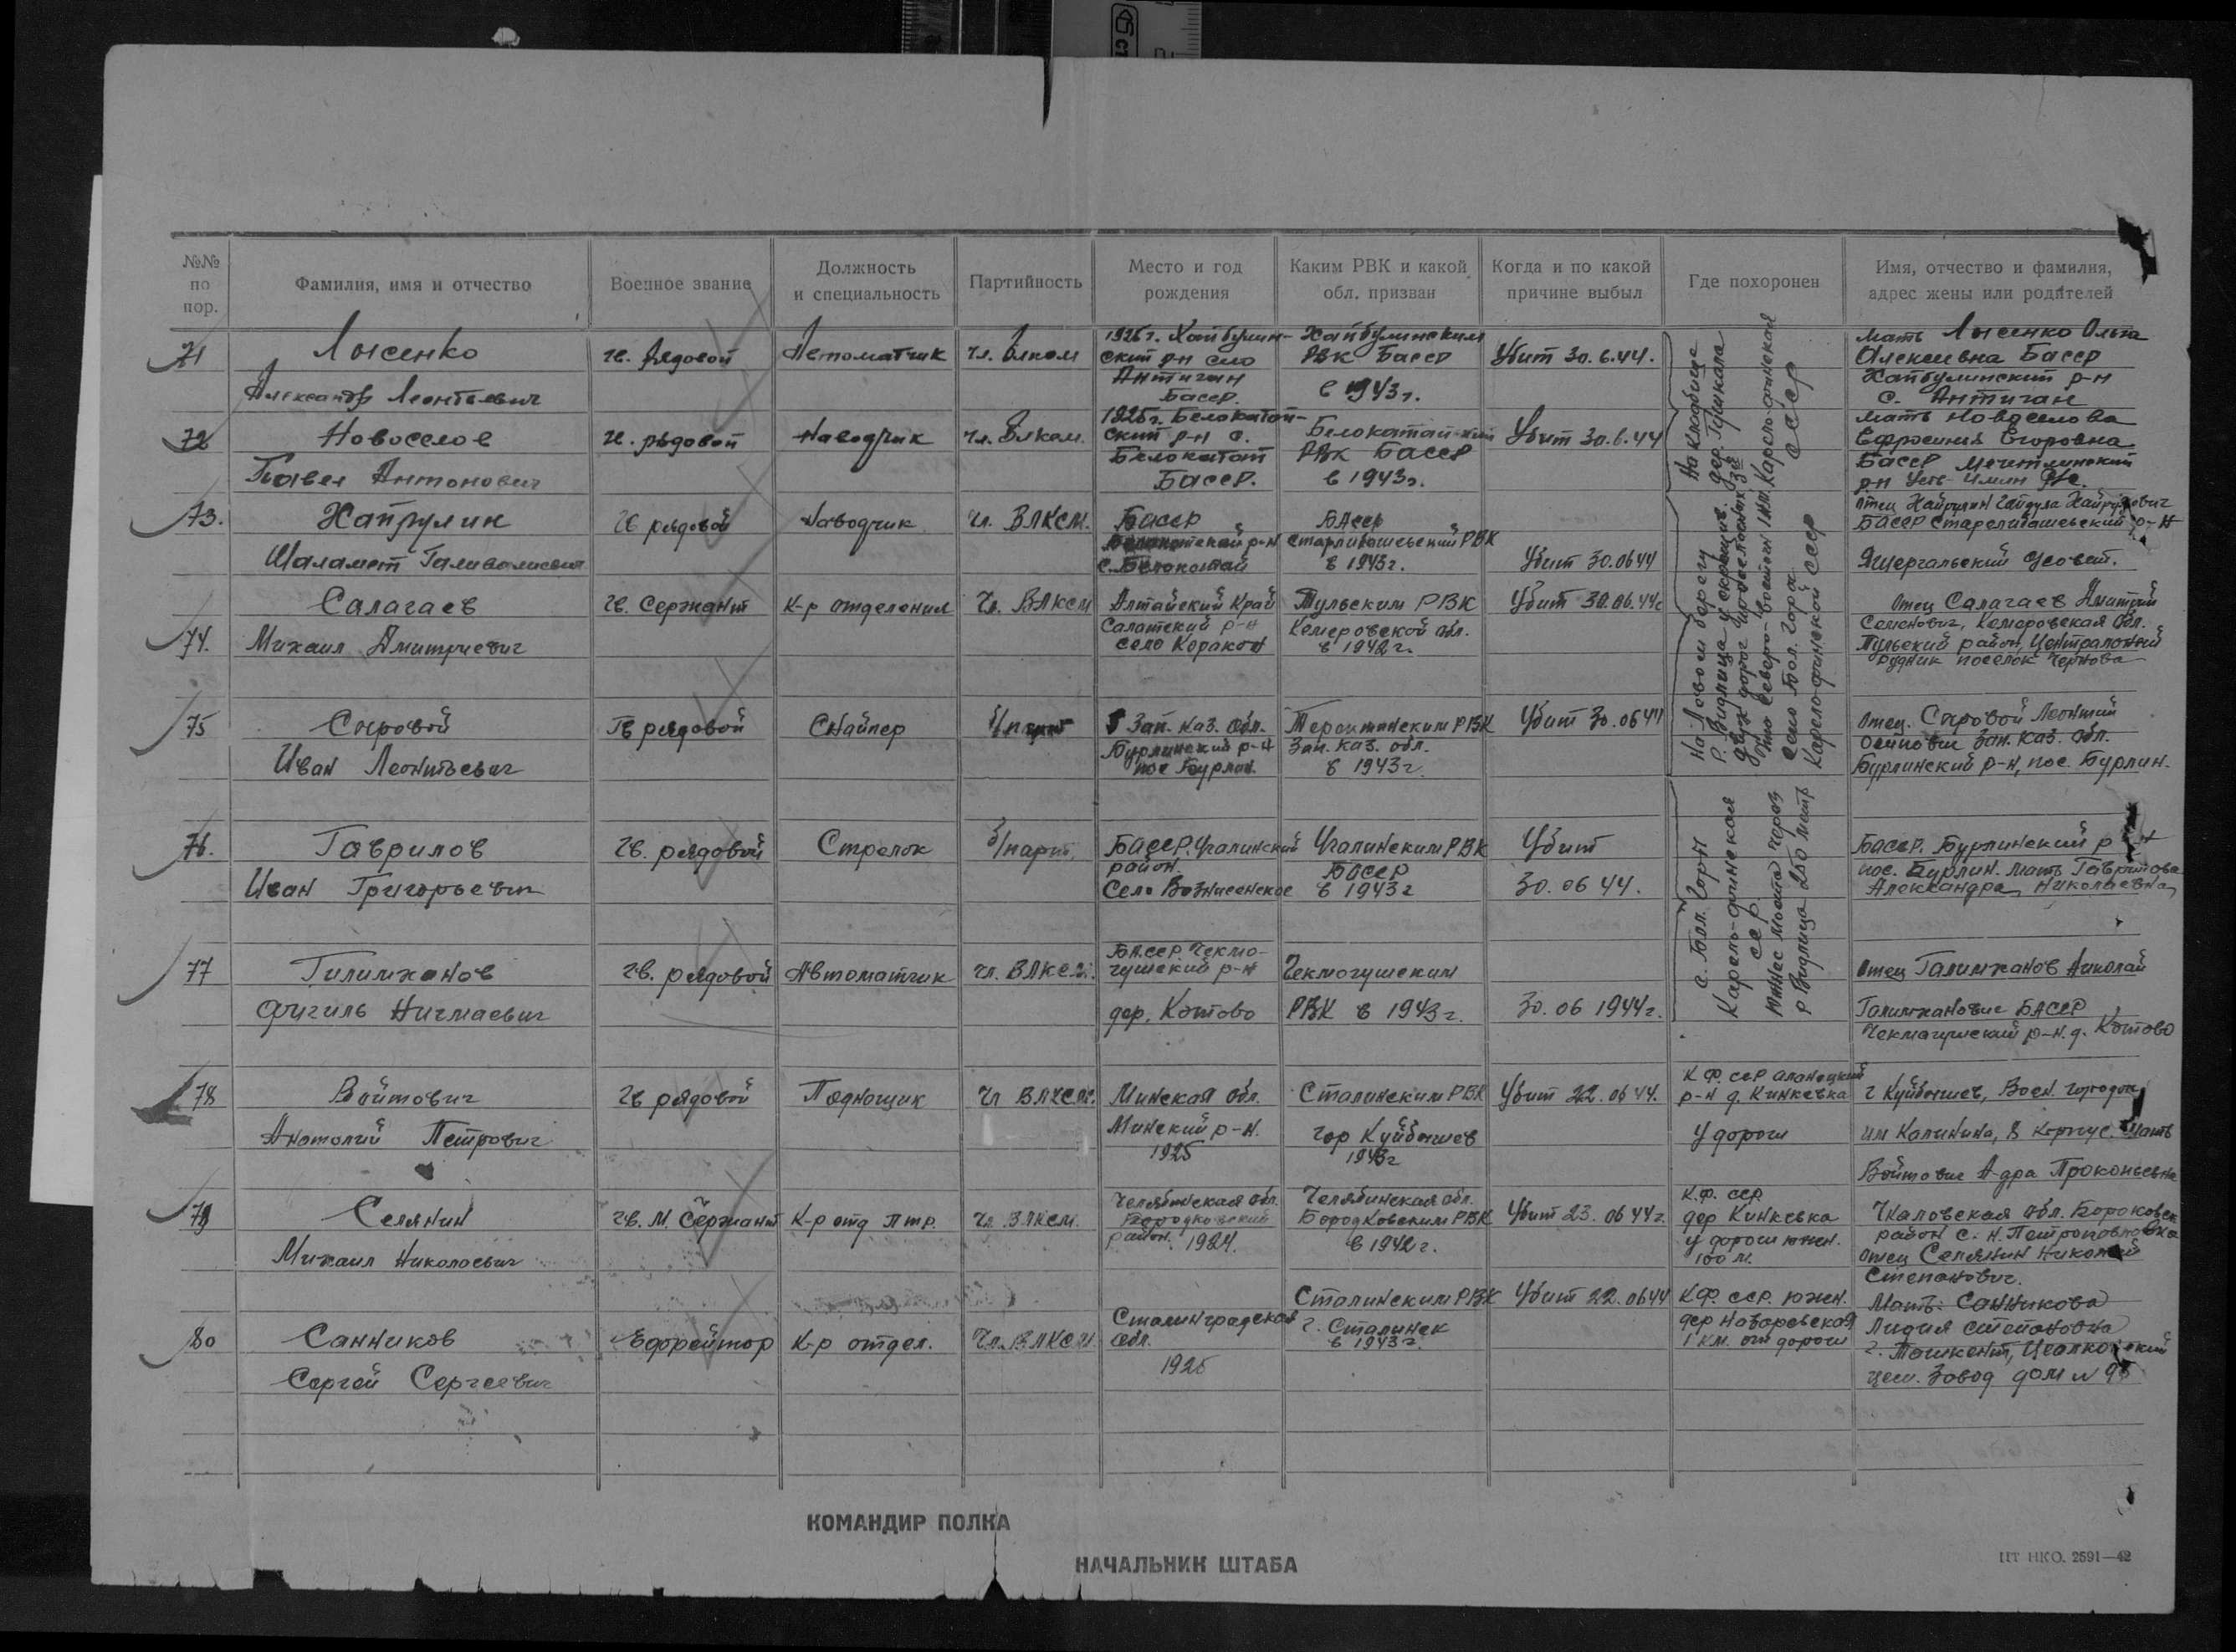 №№ по пор.
Фамилия, имя и отчество
Военное звание
Должность и специальность
Партийность
Место и год рождения
Каким РВК и какой обл. призван
Когда и по какой причине выбыл
Где похоронен
Имя, отчество и фамилия, адрес жены или родителей
71
Лысенко
Александр Леонтьевич
гв. рядовой
Автоматчик
чл. Влксм
1925 г. Хайбулин-
ский р-н село
Антиган
Басср.
Хайбулинским
РВК Басср
в 1943 г.
Убит 30.6.44.
Мать Лысенко Ольга
Алексеевна Басср
Хайбулинский р-н
с. Антиган
72
Новоселов
Павел Антонович
гв. рядовой
Наводчик
чл. Влксм.
1925 г. Белокатай-
ский р-н с.
Белокатай
Басср.
Белокатайским
РВК Басср
в 1943 г.
Убит 30.6.44
мать Новоселова
Ефросиния Егоровна
Басср Мечетлинский
р-н
На кладбище
дер. Гушкала
Карело-финская
ССР
73.
Хайрулин
гв рядовой
Наводчик
чл. ВЛКСМ.
Басср
с. Белокатай
БАсср
РВК
в 1943 г.
Убит 30.06 44
отец Хайрулин
БАССР
р-н
74.
Салагаев
Михаил Дмитриевич
гв. Сержант
К-р отделения
Чл. ВЛКСМ
Алтайский Край
р-н
село Коракан
Тульским РВК
Кемеровской обл.
в 1942 г.
Убит 30.06.44 г
отец Салагаев Дмитрий
Семенович, Кемеровская обл.
Тульский район, Центральный
рудник поселок Чернова
75
Сыровой
Иван Леонтьевич
Гв рядовой
Снайпер
б/парт
Зап. Каз. обл.
Бурлинский р-н
пос Бурлин.
РВК
Зап. Каз. обл.
в 1943 г.
Убит 30.06 44
отец. Сыровой Леонтий
Осипович Зап. Каз. обл.
Бурлинский р-н, пос. Бурлин.
На Левом берегу
р. Видлица у скрещив.
двух дорог
северо-восточн 1 км.
село Бол. Горы
Карело финской ССР
76.
Гаврилов
Иван Григорьевич
гв. рядовой
Стрелок
б/парт.
БАССР. Учалинский
район.
Село Вознисенское
Учалинским РВК
БАССР
в 1943 г
Убит
30.06 44.
БАССР. Бурлинский р-н
пос. Бурлин. мать Гаврилова
Александра Николаевна
77
Гилимханов
Фигиль Нигмаевич
гв. рядовой
Автоматчик
чл. ВЛКСМ.
БАССР. Чекмо-
гушский р-н
дер. Котово
Чекмогушским
РВК в 1943 г.
30.06 1944 г.
отец Галимханов Николай
Галимханович БАССР
Чекмагушский р-н. д. Котово
с. Бол. Горы
Карело-финская
сср
Южнее моста через
р Видлица 250 метр
78
Войтович
Анатолий Петрович
гв рядовой
Подносщик
Чл ВЛКСМ.
Минская обл.
Минский р-н.
1925
Сталинским РВК
гор Куйбышев
1943 г
Убит 22.06 44.
К.Ф. ССР Олонецкий
р-н д. Кинкевка
у дороги
г Куйбышев, Воен. городок
им Калинина, 8 корпус. Мать
Войтович А-дра Прокопьевна
79
Селянин
Михаил Николаевич
гв. м. Сержант
К-р отд птр.
Чл. ВЛКСМ.
Челябинская обл.
район. 1924.
Челябинская обл.
Бородковским РВК
в 1942 г.
Убит 23.06 44 г.
К.Ф. сср.
дер Кинкевка
у дороги южн.
100 м.
Чкаловская обл.
район с. Н. Петропавловка
отец Селянин Николай
Степанович.
80
Санников
Сергей Сергеевич
Ефрейтор
К-р отдел.
Чл. ВЛКСМ
Сталинградская
обл.
1925
Сталинским РВК
г. Сталинск
в 1943 г.
Убит 22.06 44
К.Ф. ССР. южн.
дер
1 км. от дороги
Мать: Санникова
Лидия Степановна
г. Ташкент,
цем. Завод дом №
КОМАНДИР ПОЛКА
НАЧАЛЬНИК ШТАБА
ЦТ НКО. 2591—42